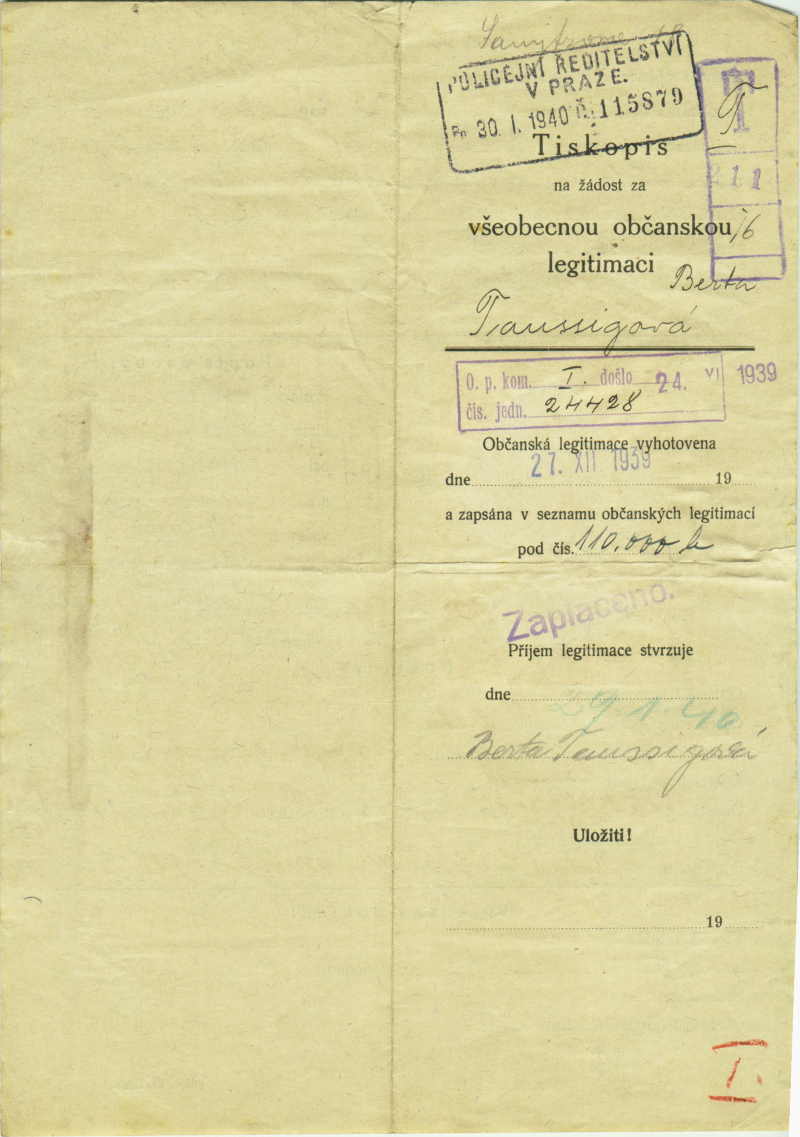 POLICEJNÍ ŘEDITELSTVÍ
V PRAZE.
30. I. 1940 Č. 115879
T
11
16
Tiskopis
na žádost za
všeobecnou občanskou
legitimaci
Berta
Taussigová
O. p. kom. I. došlo 24. VI 1939
čís. jedn. 24428
Občanská legitimace vyhotovena
dne 27. XII 1939 19
a zapsána v seznamu občanských legitimací
pod čís. 110.000 b
Zaplaceno.
Příjem legitimace stvrzuje
dne 29.1.40
Berta Taussigová
Uložiti!
19
I.